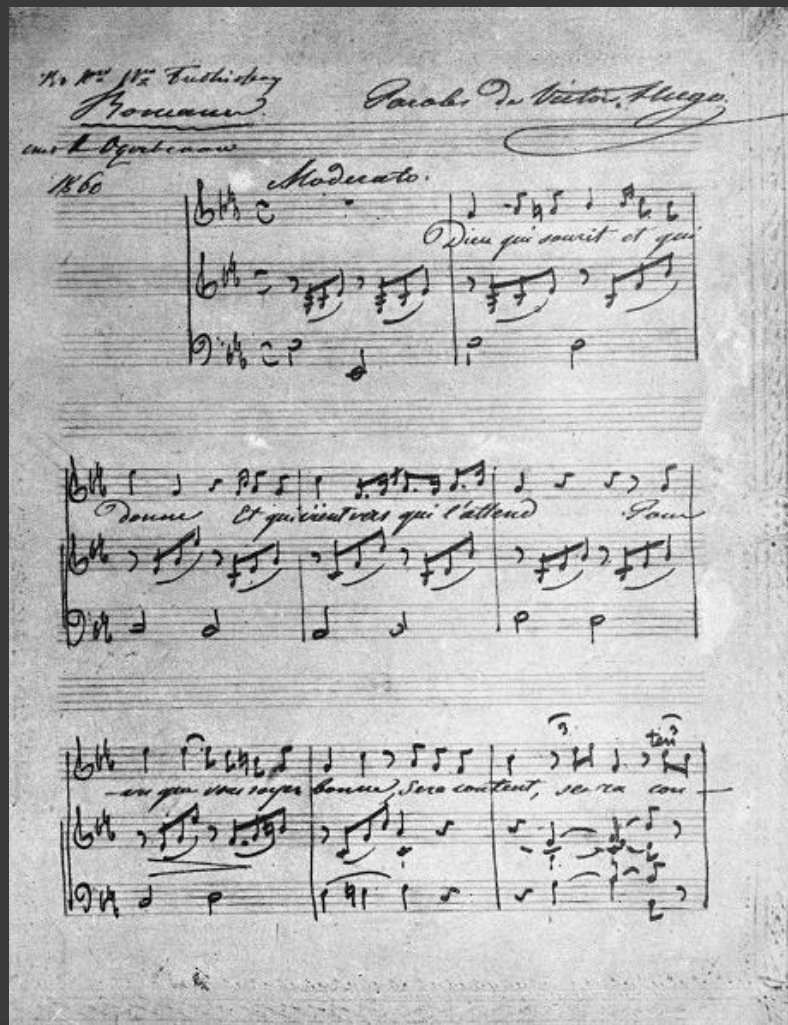 Romance
Paroles de Victor Hugo.
1860
Moderato.
Dieu qui sourit et qui
donne Et qui vient vers qui l'attend Pour
que vous soyez bonne, Sera content, sera con
3
ten